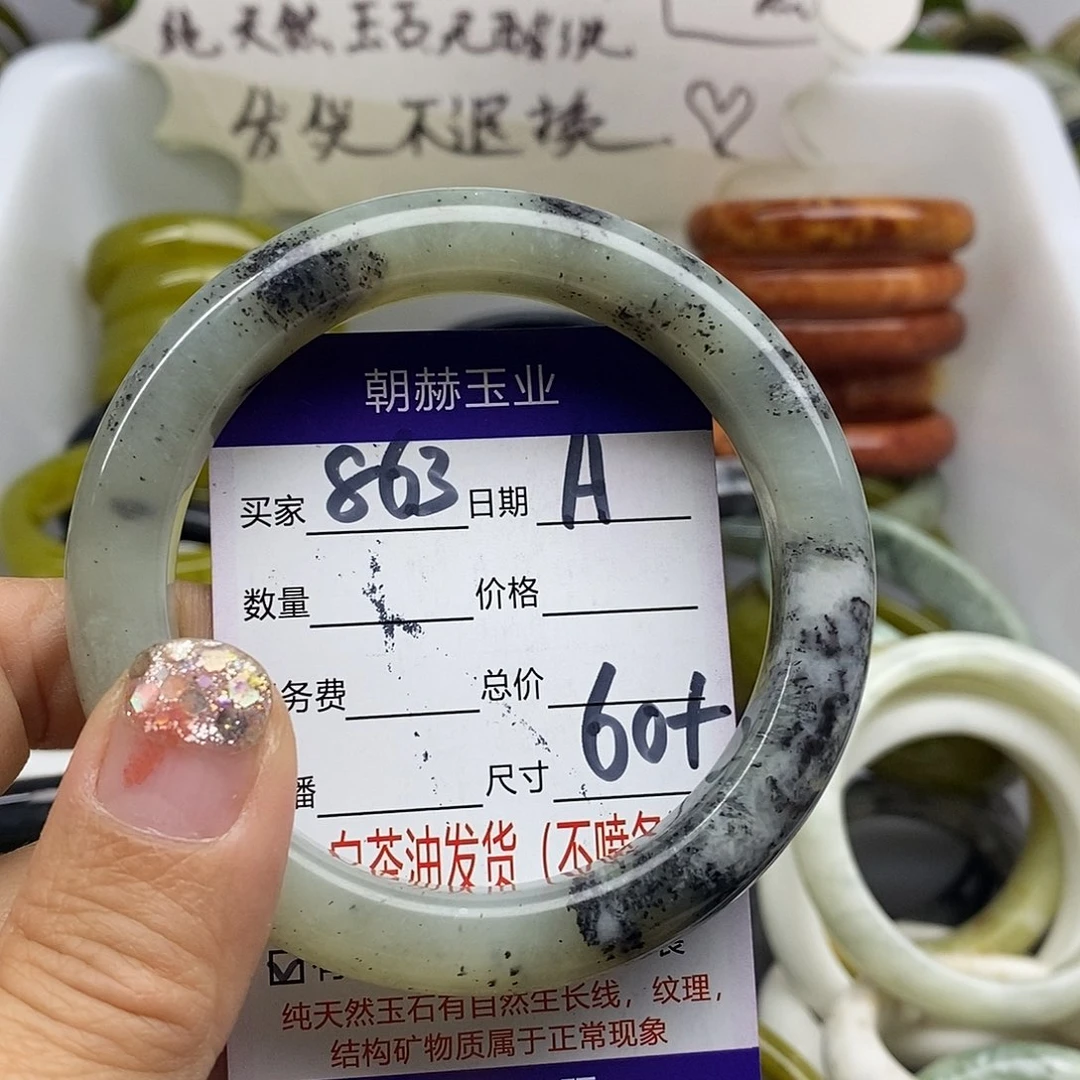 纯天然玉石无酸洗
售后不退换 ♡
朝赫玉业
买家 863 日期 A
数量 价格
务费 总价
播 尺寸 60+
白茶油发货（不喷
纯天然玉石有自然生长线，纹理，
结构矿物质属于正常现象